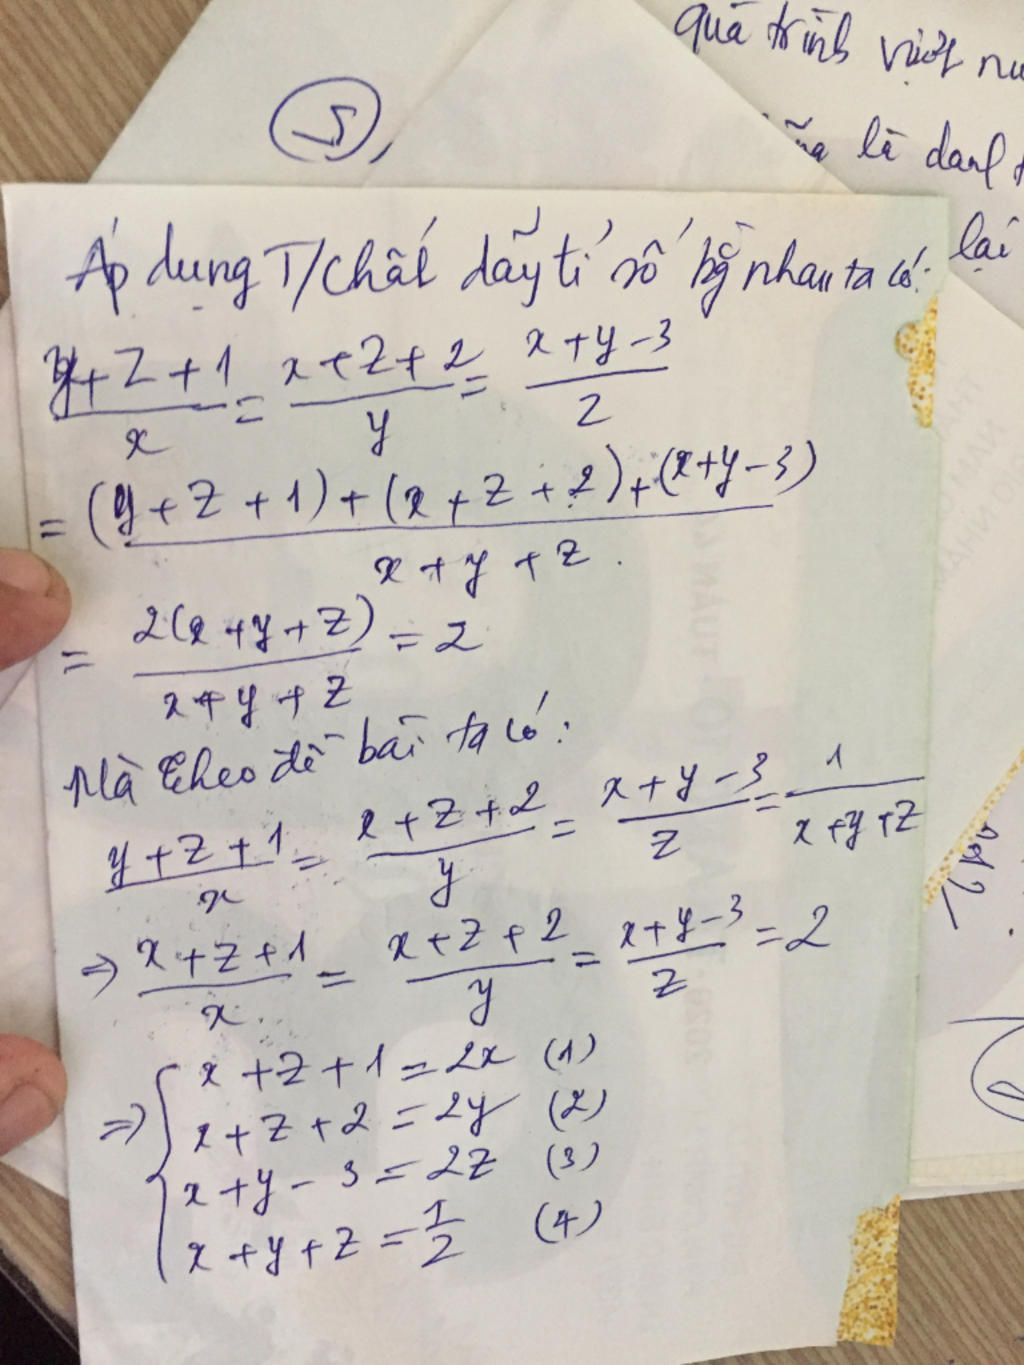 5
quá trình việt
là danh
lại
Áp dụng T/chất dãy tỉ số bg nhau ta có:
y+z+1/x = x+z+2/y = x+y-3/z
= (y+z+1)+(x+z+2)+(x+y-3)/x+y+z.
= 2(x+y+z)/x+y+z = 2
Mà theo đề bài ta có:
y+z+1/x = x+z+2/y = x+y-3/z = 1/x+y+z
=> x+z+1/x = x+z+2/y = x+y-3/z = 2
=> { x+z+1=2x (1)
x+z+2=2y (2)
x+y-3=2z (3)
x+y+z=1/2 (4)